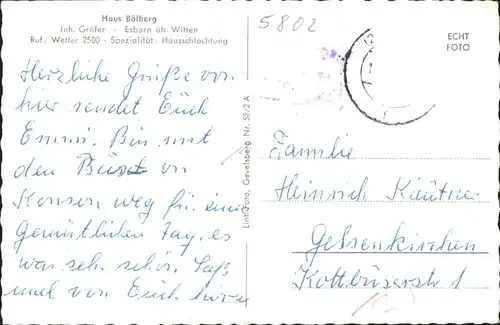 Haus Bölberg
Inh. Gräfer - Esborn üb. Witten
Ruf: Wetter 2500 - Spezialität: Hausschlachtung
5802
ECHT
FOTO
Herzliche Grüße von
hier sendet Euch
Emmi. Bin mit
den
weg für einen
gemütlichen Tag, es
war sehr schön. Laßt
mal von Euch hören
Lint-Foto, Gevelsberg Nr. 58/2 A
Familie
Heinrich
Gelsenkirchen
Kottbuserstr 1